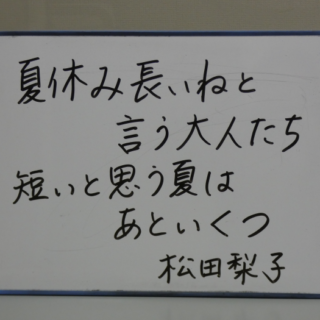 夏休み長いねと
言う大人たち
短いと思う夏は
あといくつ
松田梨子